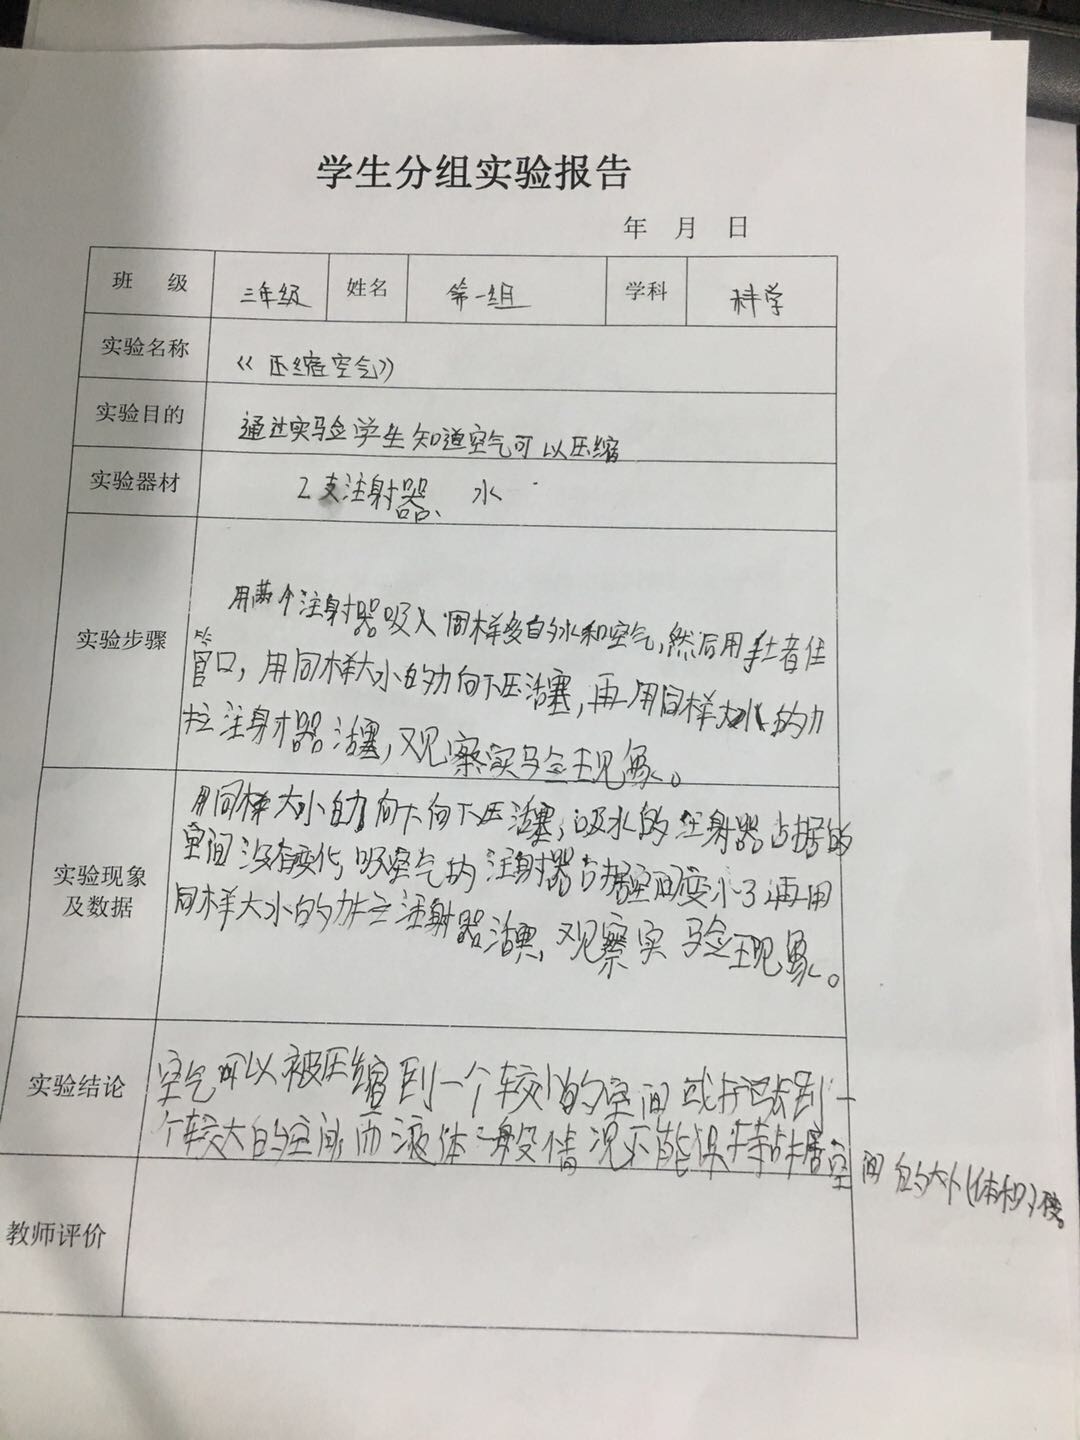 学生分组实验报告
年 月 日
班 级 三年级 姓名 第一组 学科 科学
实验名称 《压缩空气》
实验目的 通过实验学生知道空气可以压缩
实验器材 2支注射器、水
实验步骤
用两个注射器吸入同样多的水和空气,然后用手堵住
管口,用同样大小的力向下压活塞,再用同样大小的力
拉注射器活塞,观察实验现象。
实验现象及数据
用同样大小的力向下向下压活塞,吸水的注射器占据的
空间没有变化,吸空气的注射器占据空间变小了再用
同样大小的力拉注射器活塞,观察实验现象。
实验结论
空气可以被压缩到一个较小的空间或扩张到一
个较大的空间,而液体一般情况不能保持占据空间的大小(体积)
教师评价